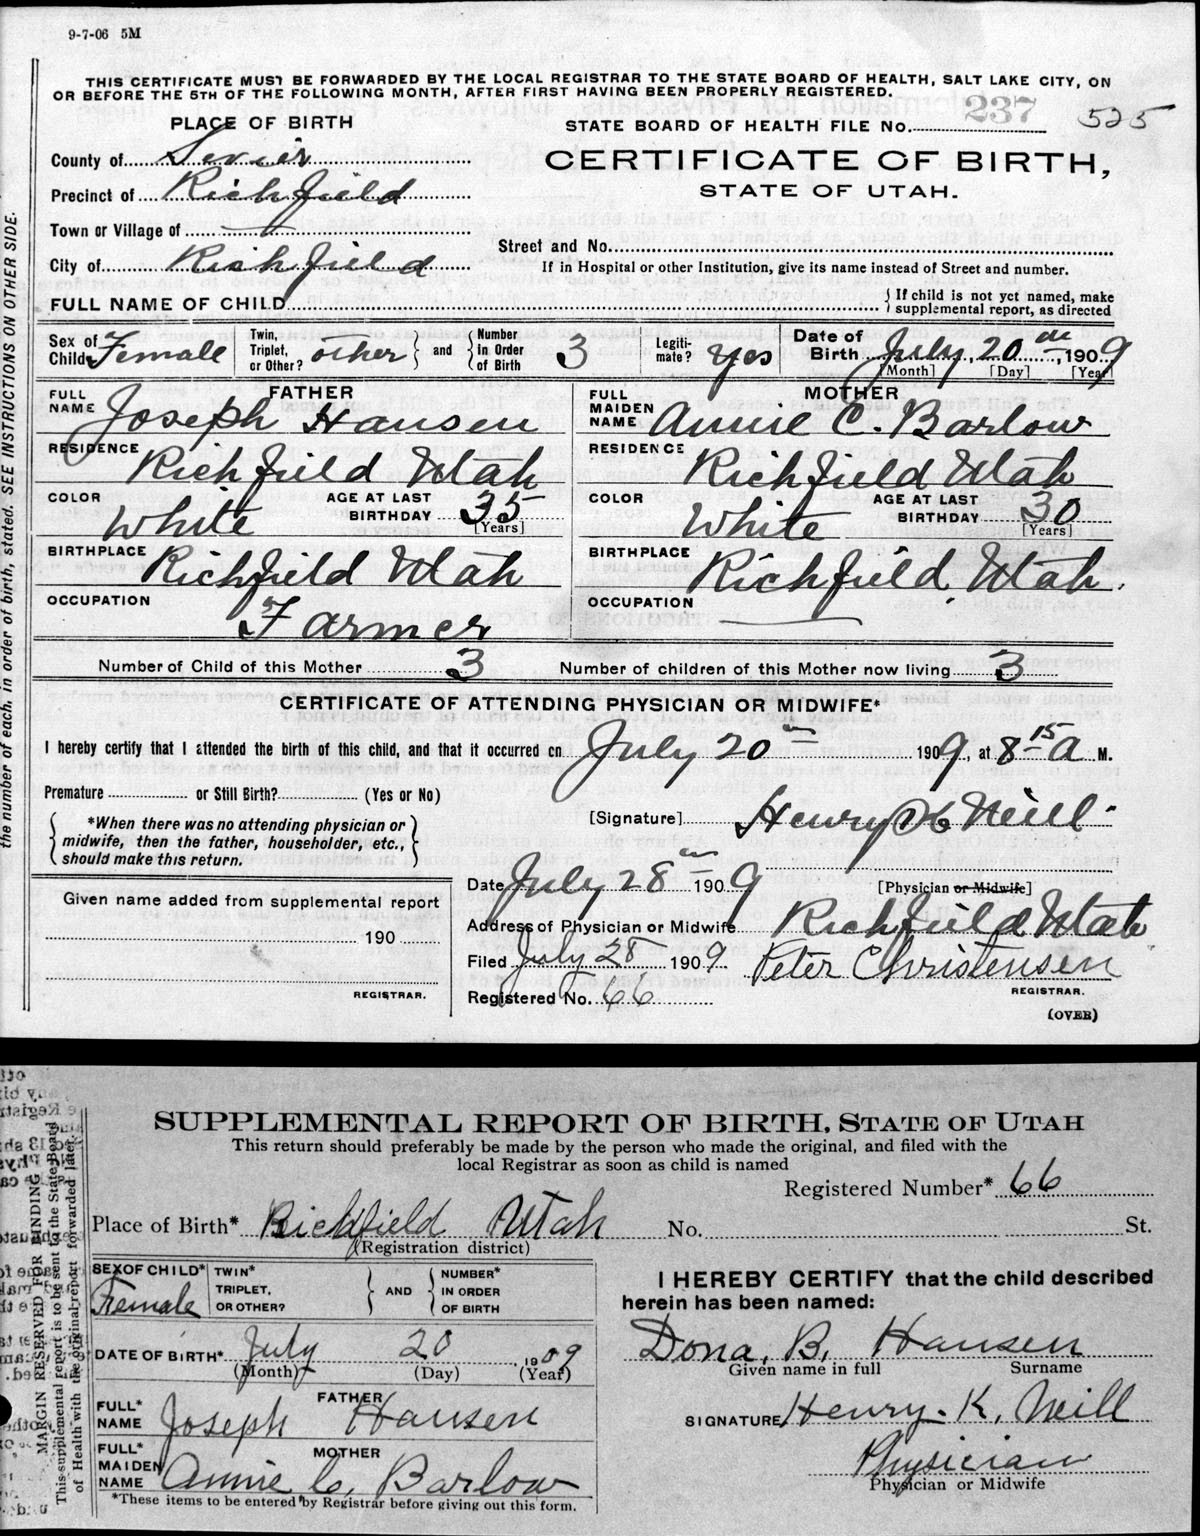 9-7-06 5M
THIS CERTIFICATE MUST BE FORWARDED BY THE LOCAL REGISTRAR TO THE STATE BOARD OF HEALTH, SALT LAKE CITY, ON
OR BEFORE THE 5TH OF THE FOLLOWING MONTH, AFTER FIRST HAVING BEEN PROPERLY REGISTERED.
PLACE OF BIRTH
STATE BOARD OF HEALTH FILE No. 237 525
County of Sevier
CERTIFICATE OF BIRTH,
Precinct of Richfield
STATE OF UTAH.
Town or Village of
Street and No.
City of Richfield
If in Hospital or other Institution, give its name instead of Street and number.
FULL NAME OF CHILD
If child is not yet named, make
supplemental report, as directed
Sex of Child Female
Twin, Triplet, or Other? other and Number in Order of Birth 3
Legiti-mate? Yes
Date of Birth July, 20 th, 1909
[Month] [Day] [Year]
FATHER
FULL NAME Joseph Hansen
RESIDENCE Richfield Utah
COLOR White AGE AT LAST BIRTHDAY 35 [Years]
BIRTHPLACE Richfield Utah
OCCUPATION Farmer
MOTHER
FULL MAIDEN NAME Annie C. Barlow
RESIDENCE Richfield Utah
COLOR White AGE AT LAST BIRTHDAY 30 [Years]
BIRTHPLACE Richfield, Utah.
OCCUPATION
Number of Child of this Mother 3 Number of children of this Mother now living 3
CERTIFICATE OF ATTENDING PHYSICIAN OR MIDWIFE*
I hereby certify that I attended the birth of this child, and that it occurred on July 20 1909, at 8 15 a M.
Premature or Still Birth? (Yes or No)
[Signature] Henry K Neill
*When there was no attending physician or
midwife, then the father, householder, etc.,
should make this return.
Date July 28 1909
[Physician or Midwife]
Given name added from supplemental report
190
REGISTRAR.
Address of Physician or Midwife Richfield Utah
Filed July 28 1909 Peter Christensen
REGISTRAR.
Registered No. 66
(OVER)
the number of each, in order of birth, stated. SEE INSTRUCTIONS ON OTHER SIDE.
SUPPLEMENTAL REPORT OF BIRTH, STATE OF UTAH
This return should preferably be made by the person who made the original, and filed with the
local Registrar as soon as child is named
Registered Number* 66
Place of Birth* Richfield Utah No. St.
(Registration district)
SEX OF CHILD* Female
TWIN* TRIPLET, OR OTHER? AND NUMBER* IN ORDER OF BIRTH
DATE OF BIRTH* July 20, 1909
(Month) (Day) (Year)
FATHER
FULL* NAME Joseph Hansen
MOTHER
FULL* MAIDEN NAME Annie C. Barlow
*These items to be entered by Registrar before giving out this form.
I HEREBY CERTIFY that the child described
herein has been named:
Dona. B. Hansen
Given name in full Surname
SIGNATURE Henry. K. Neill
Physician
Physician or Midwife
MARGIN RESERVED FOR BINDING
This supplemental report is to be sent to the State Board
of Health with the original report forwarded later.